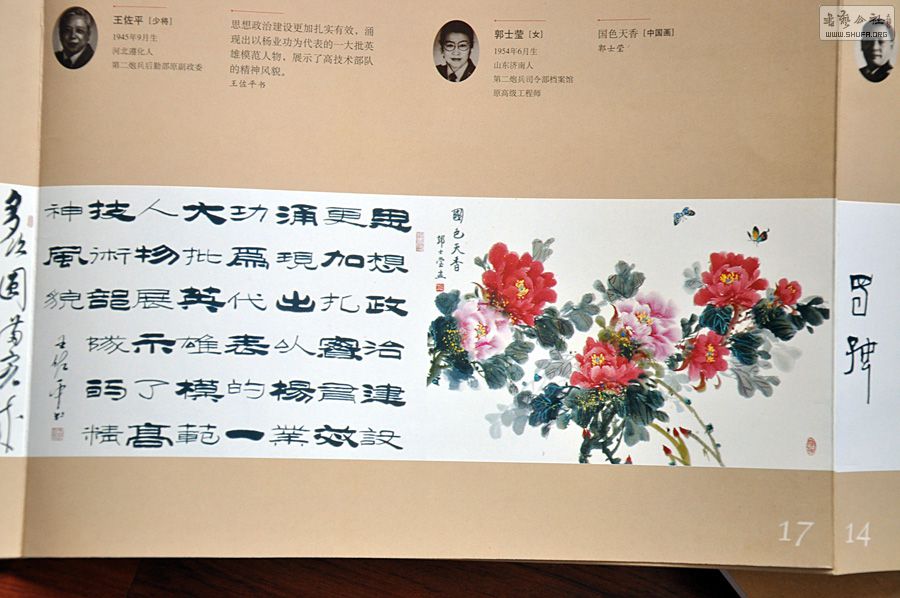 王佐平 [少将]
1945年9月生
河北遵化人
第二炮兵后勤部原副政委
思想政治建设更加扎实有效，涌
现出以杨业功为代表的一大批英
雄模范人物，展示了高技术部队
的精神风貌。
王佐平书
郭士莹 [女]
1954年6月生
山东济南人
第二炮兵司令部档案馆
原高级工程师
国色天香 [中国画]
郭士莹
WWW.SHUFA.ORG
思想政治建設
更加扎實有效
涌現出以楊業
功爲代表的一
大批英雄模範
人物展示了高
技術部隊的精
神風貌
王佐平书
國色天香
郭士莹
17
14